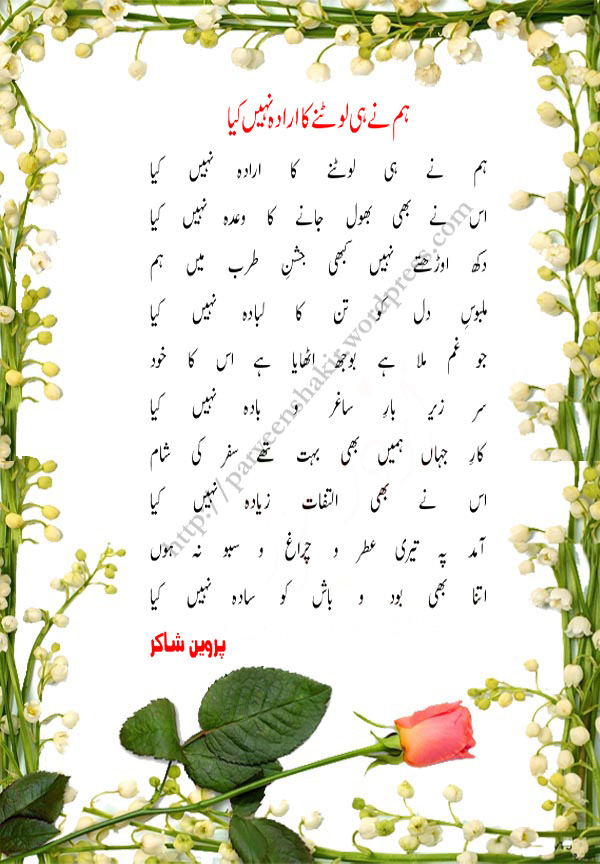 ہم نے ہی لوٹنے کا ارادہ نہیں کیا
ہم نے ہی لوٹنے کا ارادہ نہیں کیا
اس نے بھی بھول جانے کا وعدہ نہیں کیا
دکھ اوڑھتے نہیں کبھی جشنِ طرب میں ہم
ملبوسِ دل کو تن کا لبادہ نہیں کیا
جو غم ملا ہے بوجھ اٹھایا ہے اس کا خود
سر زیرِ بارِ ساغر و بادہ نہیں کیا
کارِ جہاں ہمیں بھی بہت تھے سفر کی شام
اس نے بھی التفات زیادہ نہیں کیا
آمد پہ تیری عطر و چراغ و سبو نہ ہوں
اتنا بھی بود و باش کو سادہ نہیں کیا
پروین شاکر
http://parveenshakir.wordpress.com